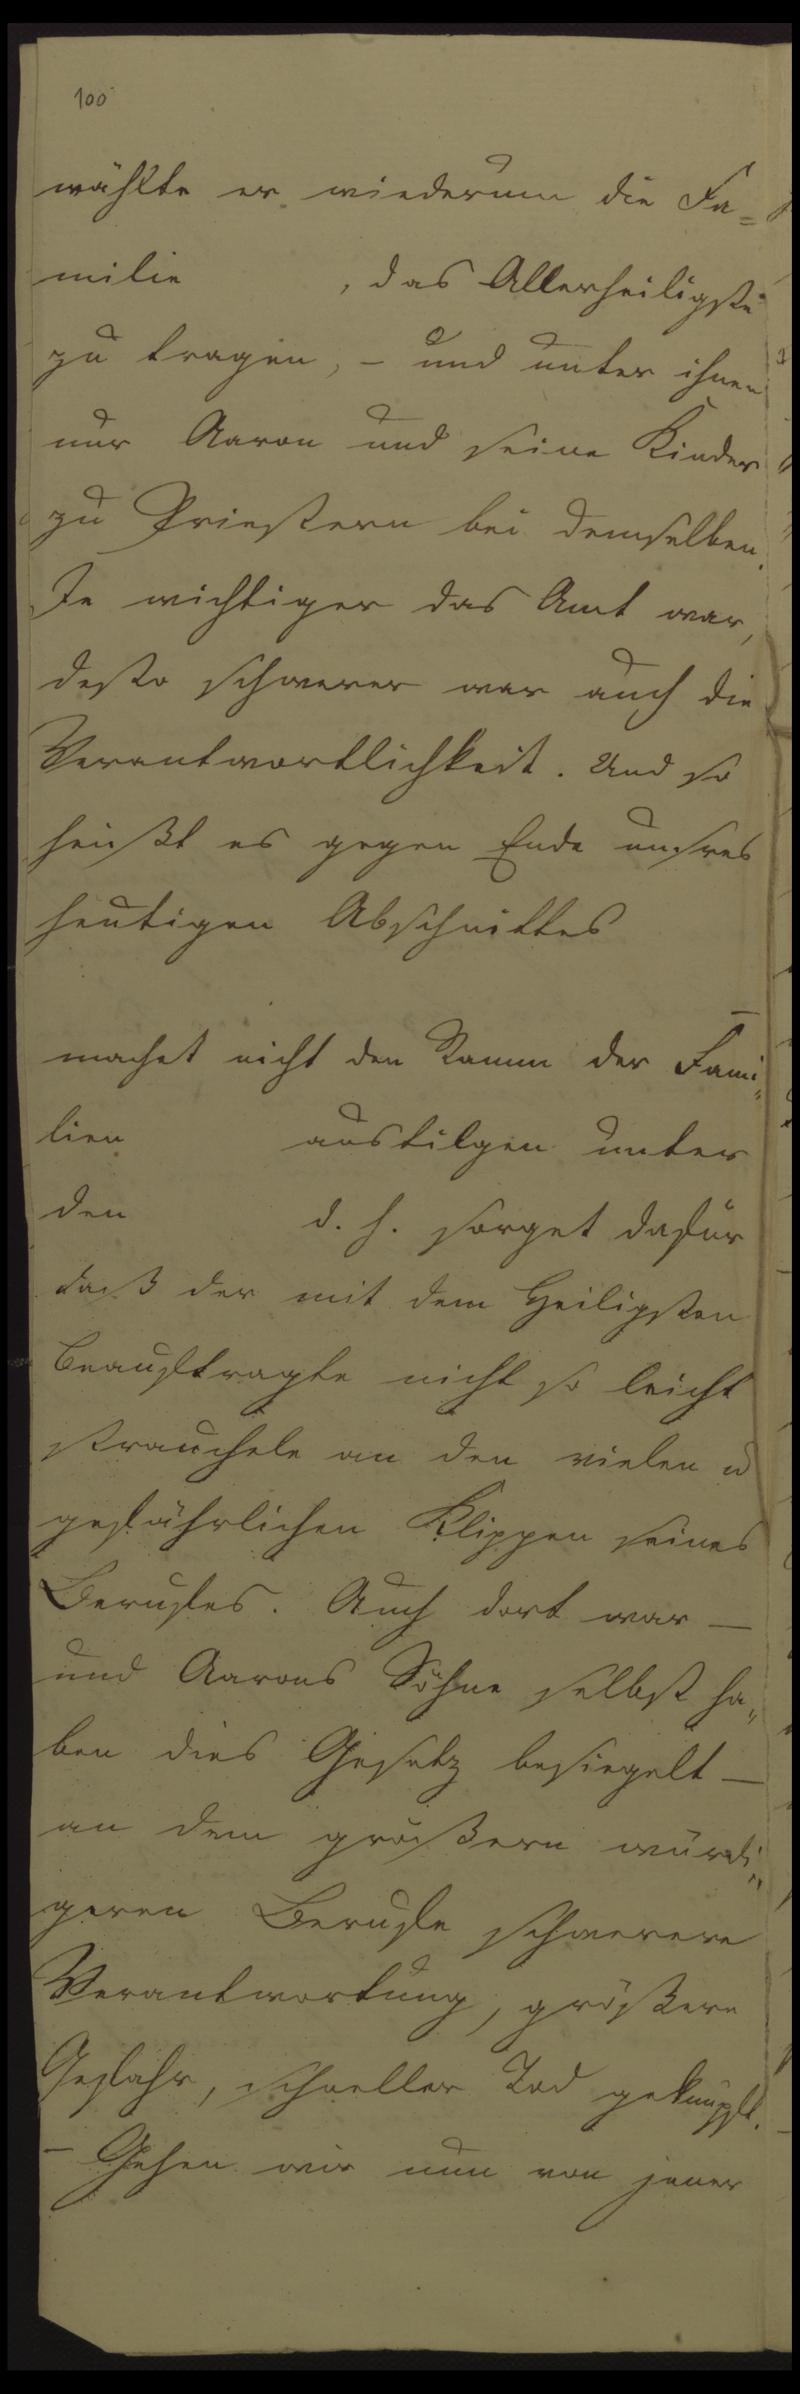 100
wählte er wiederum die Fa=
milie , das Allerheiligste
zu tragen, – und unter ihnen
nur Aaron und seine Kinder
zu Priestern bei demselben.
Je wichtiger das Amt war,
desto schwerer war auch die
Verantwortlichkeit. Und so
heißt es gegen Ende unsres
heutigen Abschnittes
–
machet nicht den Stamm der Fami=
lien austilgen unter
den d. h. sorget dafür
daß der mit dem Heiligsten
Beauftragte nicht so leicht
strauchele an den vielen u
gefährlichen Klippen seines
Berufes. Auch dort war –
und Aarons Söhne selbst ha=
ben dies Gesetz besiegelt –
an dem größern würdi=
geren Berufe schwerere
Verantwortung, größere
Gefahr, schneller Tod geknüpft.
– Gehen wir nun von jener